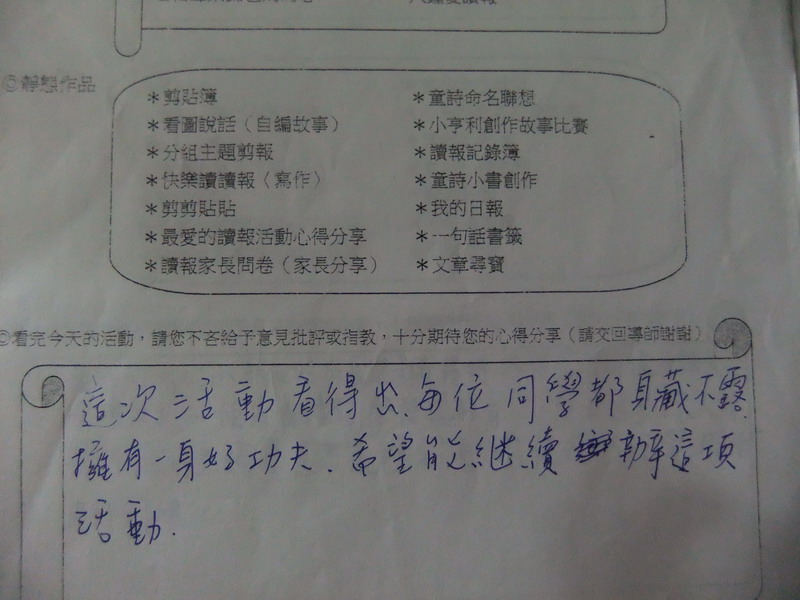 人鍾愛讀報
◎靜態作品
＊剪貼簿 ＊童詩命名聯想
＊看圖說話（自編故事） ＊小亨利創作故事比賽
＊分組主題剪報 ＊讀報記錄簿
＊快樂讀讀報（寫作） ＊童詩小書創作
＊剪剪貼貼 ＊我的日報
＊最愛的讀報活動心得分享 ＊一句話書籤
＊讀報家長問卷（家長分享） ＊文章尋寶
◎看完今天的活動，請您不吝給予意見批評或指教，十分期待您的心得分享（請交回導師謝謝）
這次活動看得出、每位同學都身藏不露.
擁有一身好功夫.希望能继續辦這項
活動.